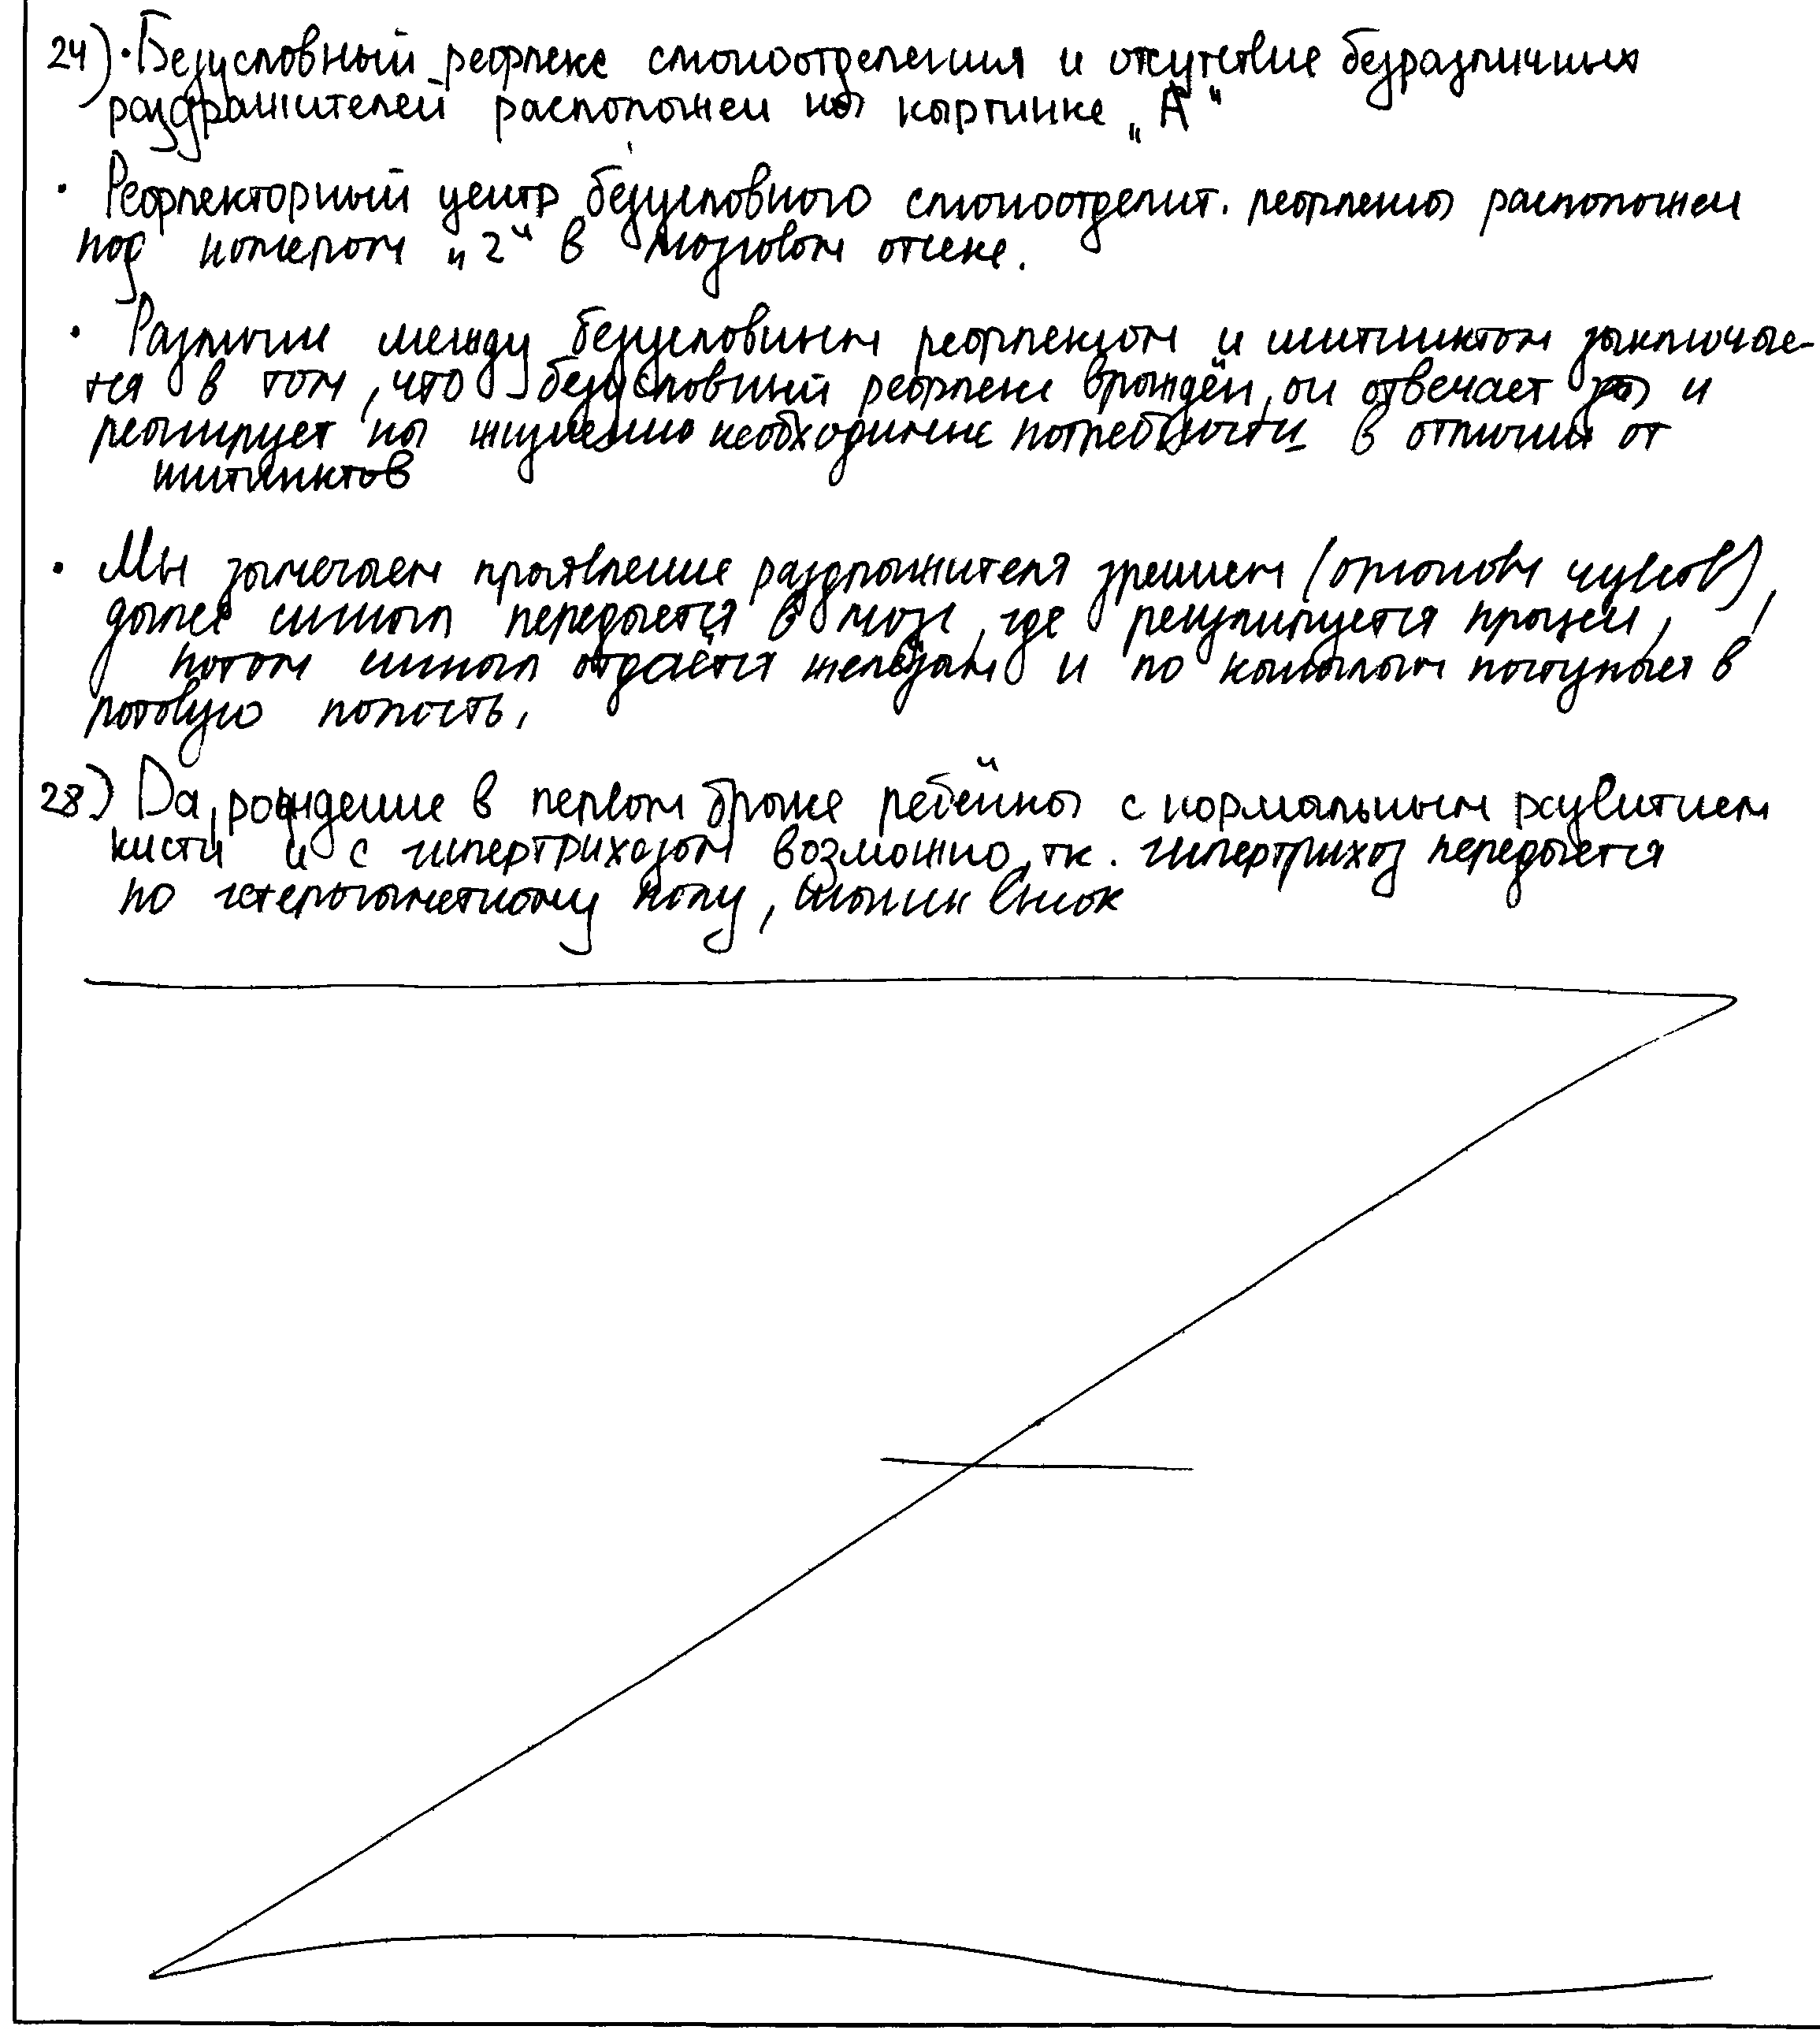 24) · Безусловный рефлекс слюноотделения и отсутствие безразличных
раздражителей расположен на картинке „А"
· Рефлекторный центр безусловного слюноотделит. рефлекса расположен
под номером „2" в мозговом отсеке.
· Различие между безусловным рефлексом и инстинктом заключае-
тся в том, что безусловный рефлекс врождён, он отвечает за и
реагирует на жизненно необходимые потребности в отличии от
инстинктов
· Мы замечаем проявление раздражителя зрением (органом чувств),
далее сигнал передается в мозг, где регулируется процесс,
потом сигнал отдаётся железам и по каналам поступает в
ротовую полость.
28) Да, рождение в первом браке ребёнка с нормальным развитием
кисти и с гипертрихозом возможно, тк. гипертрихоз передается
по гетерогаметному полу,